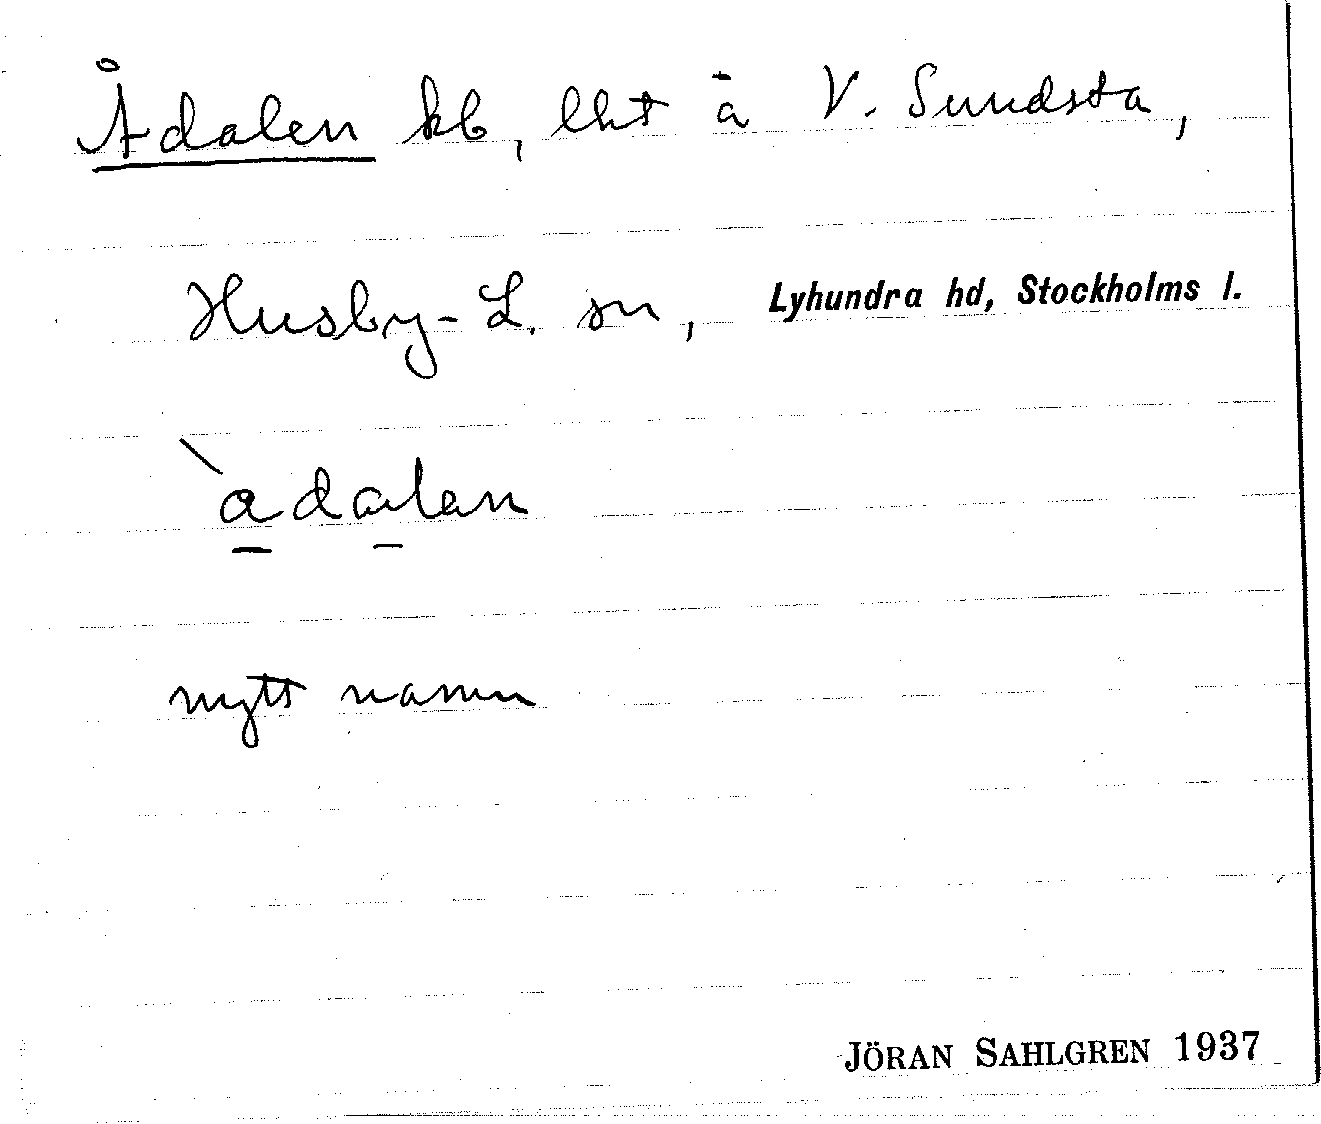 Ådalen kb, lht å V. Sundsta,
Husby-L. sn, Lyhundra hd, Stockholms l.
`a̱da̱len
nytt namn
JÖRAN SAHLGREN 1937